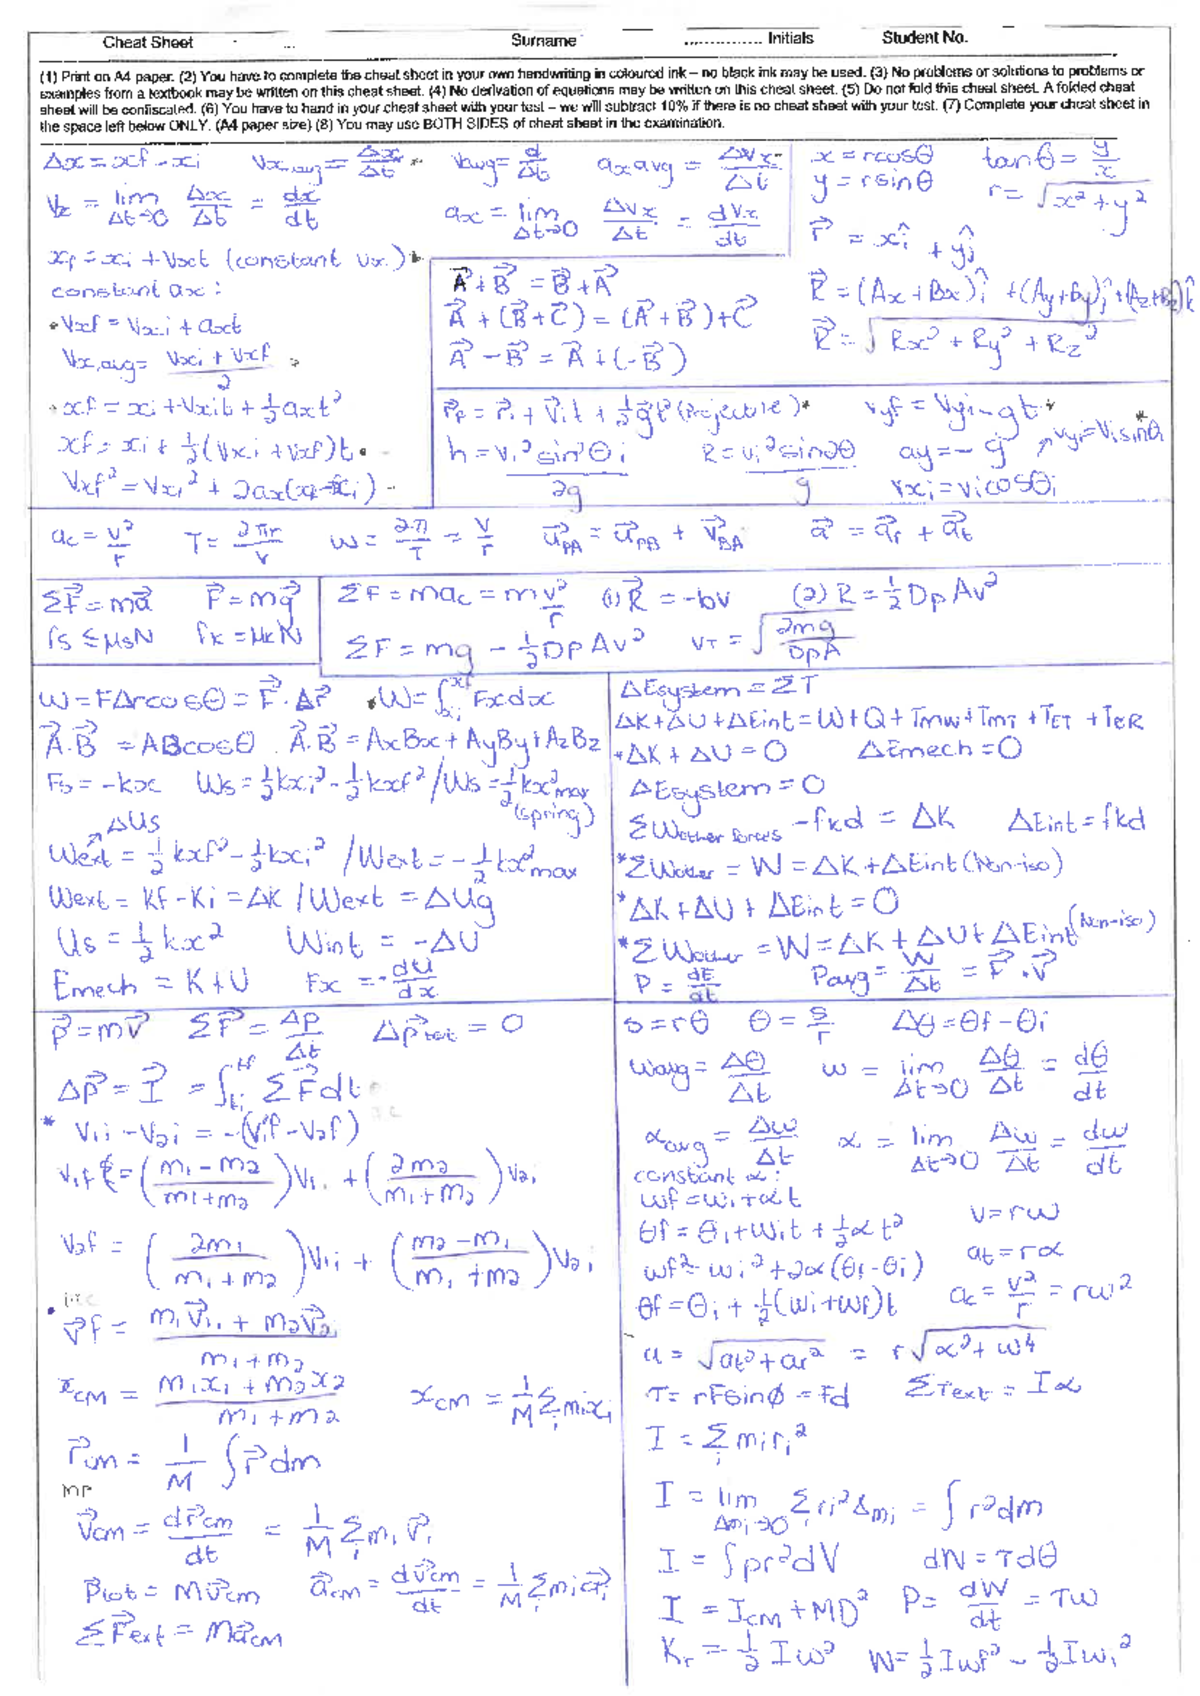 Cheat Sheet ... Surname .............. Initials Student No.
(1) Print on A4 paper. (2) You have to complete the cheat sheet in your own handwriting in coloured ink – no black ink may be used. (3) No problems or solutions to problems or
examples from a textbook may be written on this cheat sheet. (4) No derivation of equations may be written on this cheat sheet. (5) Do not fold this cheat sheet. A folded cheat
sheet will be confiscated. (6) You have to hand in your cheat sheet with your test – we will subtract 10% if there is no cheat sheet with your test. (7) Complete your cheat sheet in
the space left below ONLY. (A4 paper size) (8) You may use BOTH SIDES of cheat sheet in the examination.
Δx = xf - xi   Vx,avg = Δx/Δt   Vavg = d/Δt   ax avg = ΔVx/Δt
Vx = lim Δt→0 Δx/Δt = dx/dt   ax = lim Δt→0 ΔVx/Δt = dVx/dt
x = rcosθ   tanθ = y/x
y = rsinθ   r = √(x² + y²)
r⃗ = xî + yĵ
R⃗ = (Ax + Bx)î + (Ay + By)ĵ + (Az + Bz)k̂
R⃗ = √(Rx² + Ry² + Rz²)
xf = xi + Vxt (constant Vx)
constant ax:
Vxf = Vxi + axt
Vx,avg = (Vxi + Vxf)/2
xf = xi + Vxit + ½axt²
xf = xi + ½(Vxi + Vxf)t
Vxf² = Vxi² + 2ax(xf - xi)
A⃗ + B⃗ = B⃗ + A⃗
A⃗ + (B⃗ + C⃗) = (A⃗ + B⃗) + C⃗
A⃗ - B⃗ = A⃗ + (-B⃗)
r⃗f = r⃗i + V⃗it + ½g⃗t² (Projectile)*   Vyf = Vyi - gt *
h = vi²sin²θi/2g   R = vi²sin2θ/g   ay = -g   Vyi = Visinθi *
Vxi = vicosθi
ac = v²/r   T = 2πr/v   ω = 2π/T = v/r   u⃗PA = u⃗PB + v⃗BA   a⃗ = a⃗r + a⃗t
ΣF⃗ = ma⃗   F⃗ = mg⃗
fs ≤ μsN   fk = μkN
ΣF = mac = m v²/r   (1) R⃗ = -bv   (2) R = ½DρAv²
ΣF = mg - ½DρAv²   vT = √(2mg/DρA)
W = FΔrcosθ = F⃗ · Δr⃗   W = ∫xi xf Fxdx
A⃗·B⃗ = ABcosθ   A⃗·B⃗ = AxBx + AyBy + AzBz
Fs = -kx   Ws = ½kxi² - ½kxf² / Ws = ½kx²max (spring)
ΔUs
Wext = ½kxf² - ½kxi² / Wext = -½kx²max
Wext = Kf - Ki = ΔK / Wext = ΔUg
Us = ½kx²   Wint = -ΔU
Emech = K + U   Fx = -dU/dx
ΔEsystem = ΣT
ΔK + ΔU + ΔEint = W + Q + TMW + TMT + TET + TER
*ΔK + ΔU = 0   ΔEmech = 0
ΔEsystem = 0
ΣWother forces - fkd = ΔK   ΔEint = fkd
*ΣWother = W = ΔK + ΔEint (Non-iso)
*ΔK + ΔU + ΔEint = 0
*ΣWother = W = ΔK + ΔU + ΔEint (Non-iso)
P = dE/dt   Pavg = W/Δt = F⃗ · V⃗
p⃗ = mv⃗   ΣF⃗ = Δp/Δt   Δp⃗tot = 0
Δp⃗ = I⃗ = ∫ti tf ΣF⃗dt
* V1i - V2i = -(V1f - V2f)
V1f = ((m1 - m2)/(m1 + m2))V1i + (2m2/(m1 + m2))V2i
V2f = (2m1/(m1 + m2))V1i + ((m2 - m1)/(m1 + m2))V2i
v⃗f = (m1v⃗1i + m2v⃗2i)/(m1 + m2)
xCM = (m1x1 + m2x2)/(m1 + m2)   xCM = 1/M Σi mixi
r⃗CM = 1/M ∫r⃗dm
v⃗CM = dr⃗CM/dt = 1/M Σi miv⃗i
p⃗tot = Mv⃗CM   a⃗CM = dv⃗CM/dt = 1/M Σi mia⃗i
ΣF⃗ext = Ma⃗CM
s = rθ   θ = s/r   Δθ = θf - θi
ωavg = Δθ/Δt   ω = lim Δt→0 Δθ/Δt = dθ/dt
αavg = Δω/Δt   α = lim Δt→0 Δω/Δt = dω/dt
constant α:
ωf = ωi + αt
θf = θi + ωit + ½αt²   v = rω
ωf² = ωi² + 2α(θf - θi)   at = rα
θf = θi + ½(ωi + ωf)t   ac = v²/r = rω²
a = √(at² + ar²) = r√(α² + ω⁴)
τ = rFsinϕ = Fd   Στext = Iα
I = Σi miri²
I = lim Δmi→0 Σi ri²Δmi = ∫r²dm
I = ∫ρr²dV   dW = τdθ
I = ICM + MD²   P = dW/dt = τω
Kr = ½Iω²   W = ½Iωf² - ½Iωi²